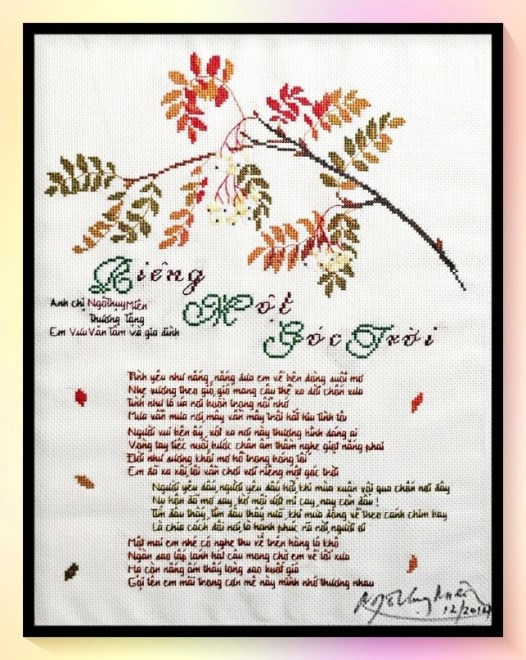 Riêng
Một
Góc Trời
Anh chị Ngô Thụy Miên
Thương Tặng
Em Vưu Văn Tâm và gia đình
Tình yêu như nắng, nắng đưa em về bên dòng suối mơ
Nhẹ vương theo gió, gió mang câu thề xa dời chốn xưa
Tình như lá úa rơi buồn trong nỗi nhớ
Mưa vẫn mưa rơi, mây vẫn mây trôi hắt hiu tình tôi
Người vui bên ấy, xót xa nơi này thương hình dáng ai
Vòng tay tiếc nuối, bước chân âm thầm nghe giọt nắng phai
Đời như sương khói mơ hồ trong bóng tối
Em đã xa xôi, tôi vẫn chơi vơi riêng một góc trời
Người yêu dấu, người yêu dấu hỡi, khi mùa xuân vội qua chốn nơi đây
Nụ hôn đã mơ say, bờ môi ướt mi cay, nay còn đâu !
Tìm đâu thấy, tìm đâu thấy nữa, khi mùa đông về theo cánh chim bay
Là chia cách đôi nơi, là hạnh phúc rã rời, người ơi
Một mai em nhé có nghe thu về trên hàng lá khô
Ngàn sao lấp lánh hát câu mong chờ em về lối xưa
Hạ còn nắng ấm thấy lòng sao buốt giá
Gọi tên em mãi trong cơn mê này mình nhớ thương nhau
Ngô Thụy Miên